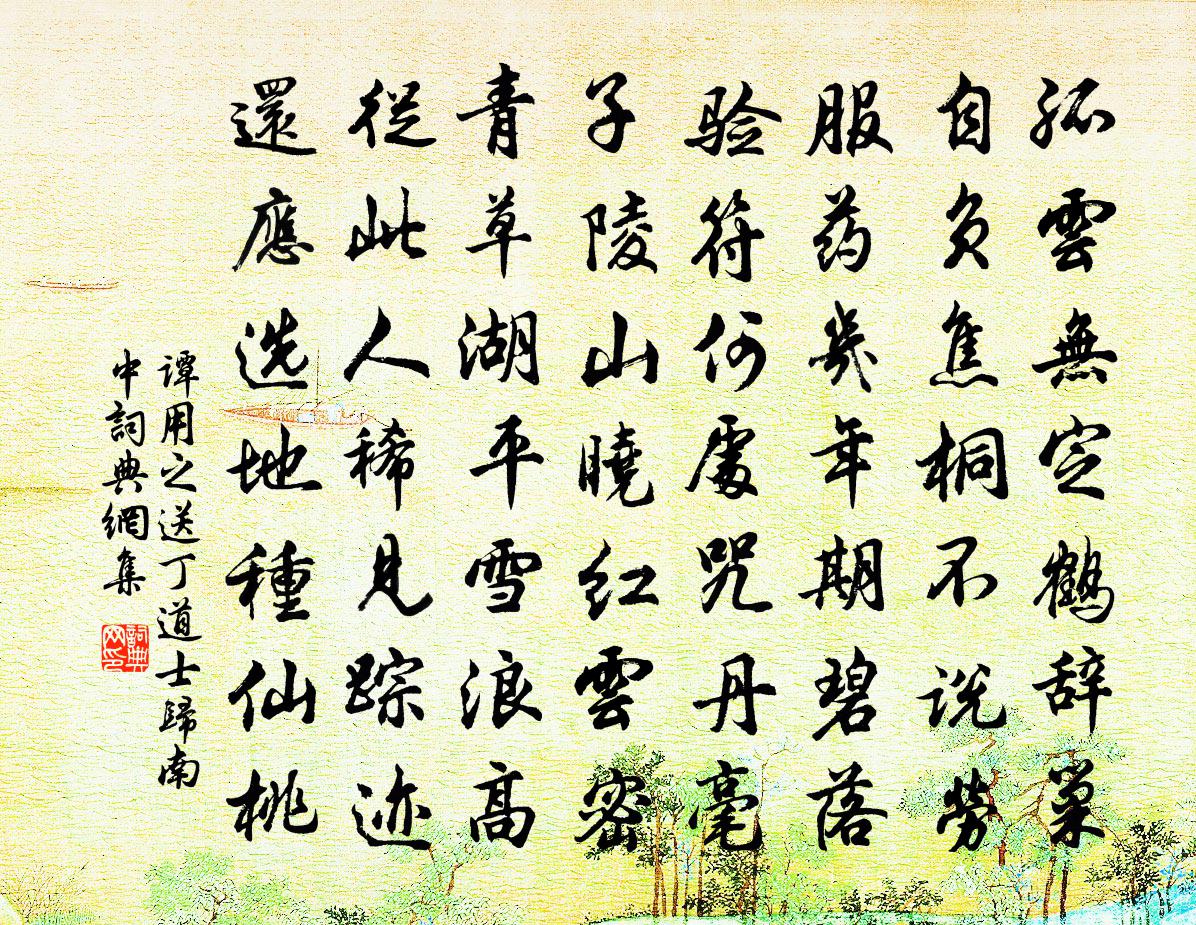 孤雲無定鶴辞巢
自负焦桐不说勞
服药幾年期碧落
验符何處咒丹毫
子陵山曉红雲密
青草湖平雪浪高
從此人稀見踪迹
還應选地種仙桃
谭用之送丁道士歸南
中詞典網集
詞典网印